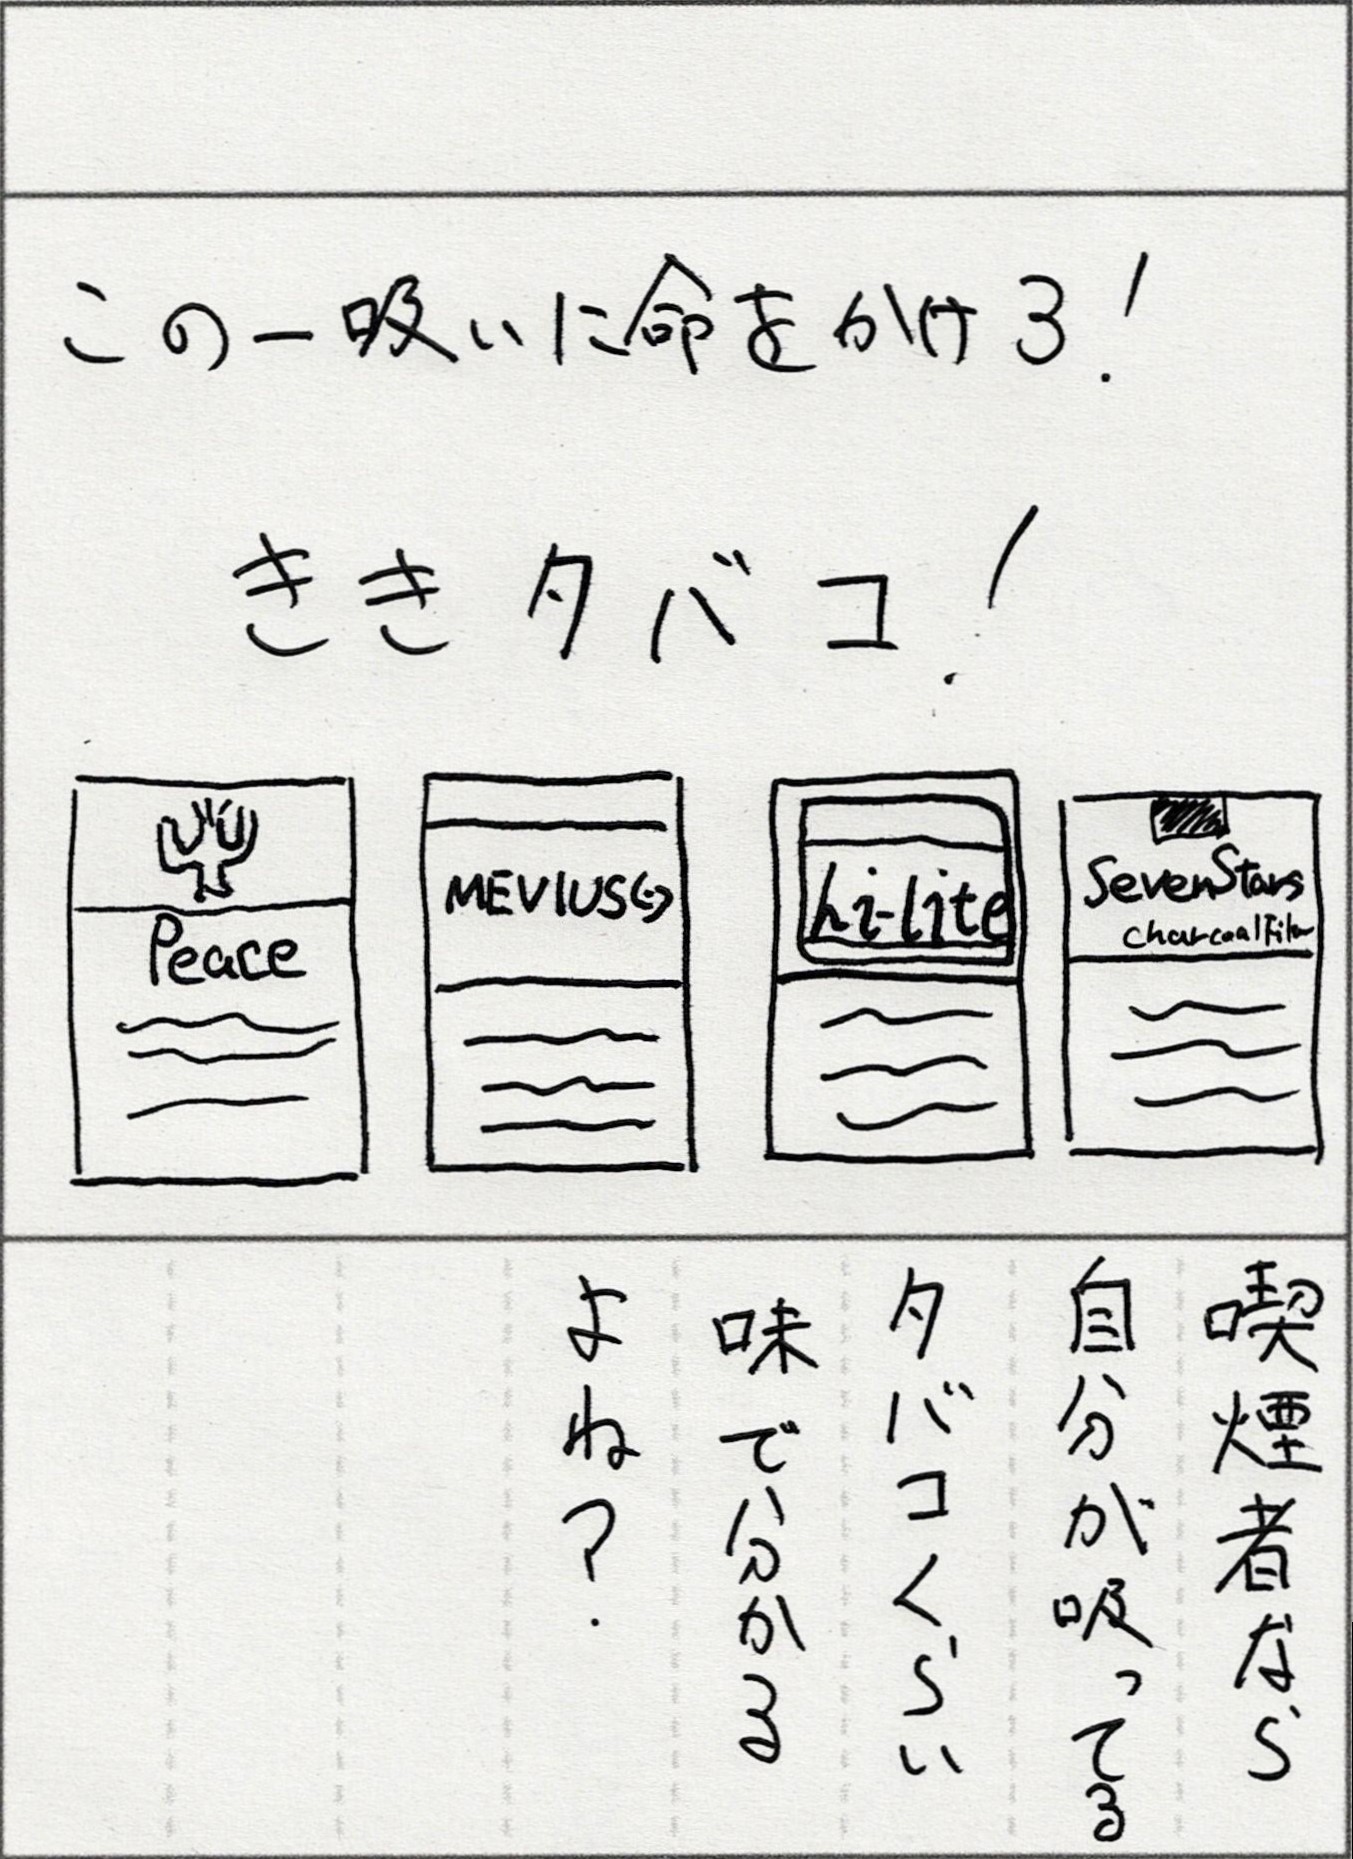 この一吸いに命をかけろ!
ききタバコ!
Peace
MEVIUS
hi-lite
SevenStars
charcoalFilter
喫煙者なら
自分が吸ってる
タバコくらい
味で分かる
よね?